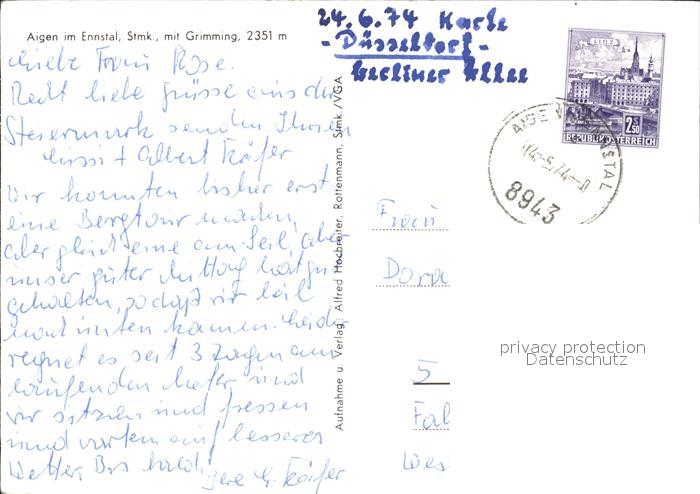 Aigen im Ennstal, Stmk., mit Grimming, 2351 m
Liebe Frau Rose.
Recht liebe Grüsse aus der
Steiermark senden Ihnen
Lissi + Albert Käfer
Wir konnten bisher erst
eine Bergtour machen,
aber gleich eine am Seil, aber
unser guter hat gut
gehalten, sodaß wir heil
nach unten kamen. Leider
regnet es seit 3 Tagen am
laufenden Meter und
wir sitzen und fressen
und warten auf besseres
Wetter. Bis bald!
Käfer
Aufnahme u. Verlag: Alfred Hochreiter, Rottenmann, Stmk./VGA
24.6.74 Karte
-Düsseldorf-
Berliner Allee
LINZ
2.50
REPUBLIK ÖSTERREICH
AIGEN IM ENNSTAL
8943
Frau
Dora
5
privacy protection
Datenschutz